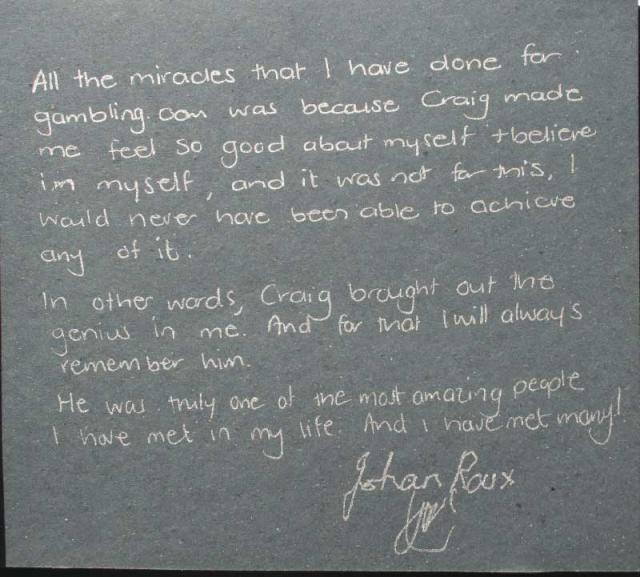 All the miracles that I have done for
gambling.com was because Craig made
me feel so good about myself + believe
im myself, and it was not for this, I
would never have been able to achieve
any of it.
In other words, Craig brought out the
genius in me. And for that I will always
remember him.
He was truly one of the most amazing people
I have met in my life. And I have met many!
Johan Roux